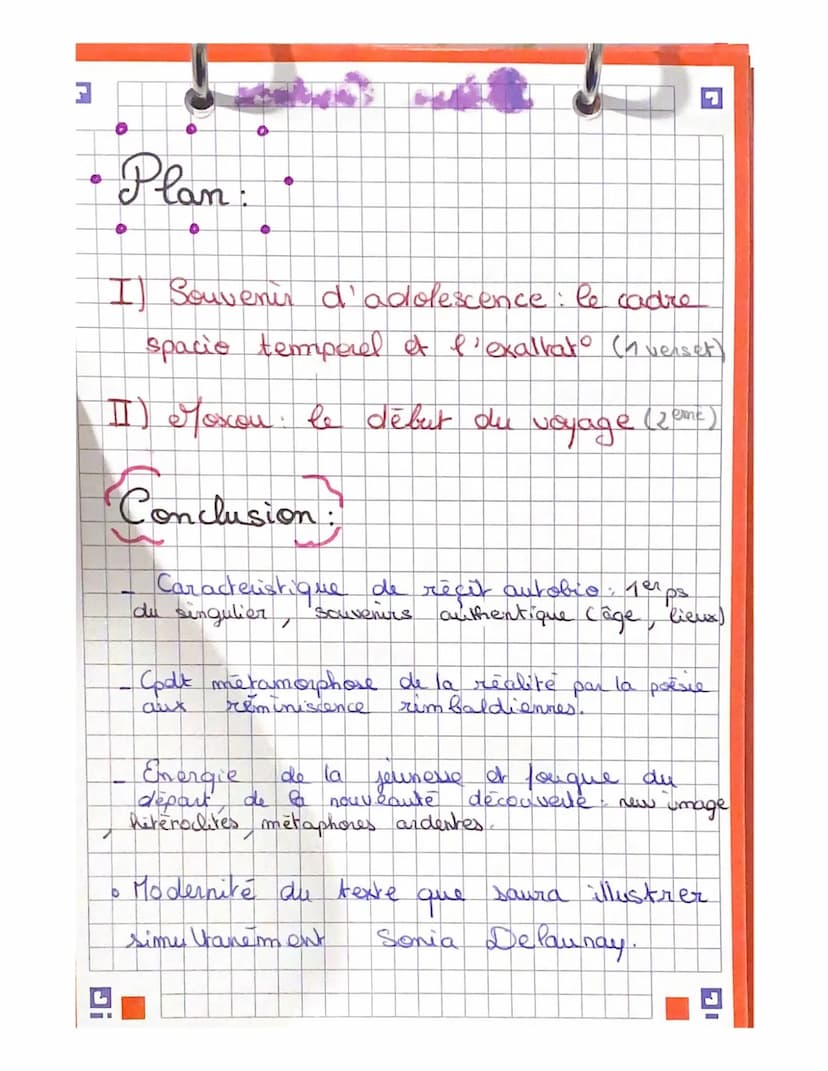 Plan :
I) Souvenir d'adolescence : le cadre
spacio temporel et l'exaltat° (1 verset)
II) Moscou : le début du voyage (2eme)
Conclusion :
- Caractéristique de récit autobio : 1er ps
du singulier, souvenirs authentique (âge, lieux)
- Cpdt métamorphose de la réalité par la poésie
aux réminiscence rimbaldiennes.
- Energie de la jeunesse et fougue du
départ, de la nouveauté découverte : new image
, hétéroclites, métaphores ardentes.
• Modernité du texte que saura illustrer
simultaném ent Sonia Delaunay.